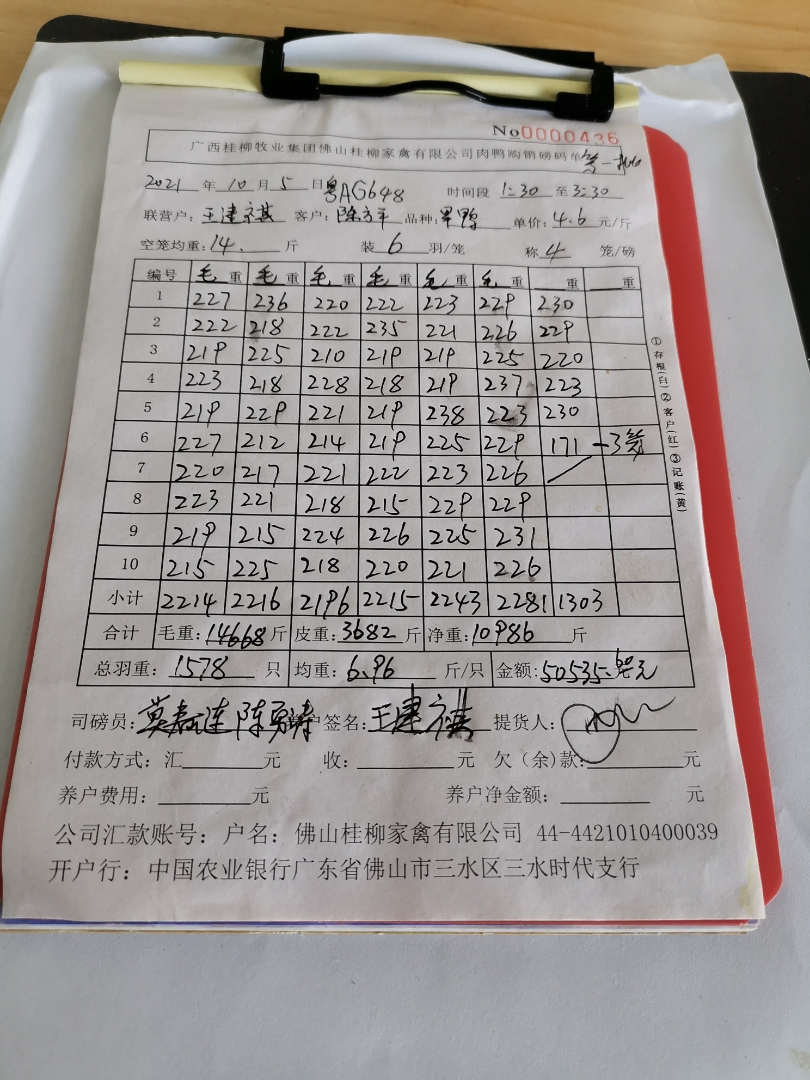 No0000436
广西桂柳牧业集团佛山桂柳家禽有限公司肉鸭购销磅码单 第一
2021 年 10 月 5 日 粤AG648 时间段 1:30 至 3:30
联营户: 王建 客户: 陈方平 品种: 鸭 单价: 4.6 元/斤
空笼均重: 14. 斤 装 6 羽/笼 称 4 笼/磅
编号 毛重 毛重 毛重 毛重 毛重 毛重 重 重
1 227 236 220 222 223 229 230
2 222 218 222 235 221 226 229
3 219 225 210 219 219 225 220
4 223 218 228 218 219 237 223
5 219 229 221 219 238 223 230
6 227 212 214 219 225 229 171 -3笼
7 220 217 221 222 223 226
8 223 221 218 215 229 229
9 219 215 224 226 225 231
10 215 225 218 220 221 226
小计 2214 2216 2196 2215 2243 2281 1303
合计 毛重: 14668 斤 皮重: 3682 斤 净重: 10986 斤
总羽重: 1578 只 均重: 6.96 斤/只 金额: 50535.60元
①存根(白)②客户(红)③记账(黄)
司磅员: 养户签名: 王建 提货人:
付款方式: 汇 元 收: 元 欠(余)款: 元
养户费用: 元 养户净金额: 元
公司汇款账号: 户名: 佛山桂柳家禽有限公司 44-4421010400039
开户行: 中国农业银行广东省佛山市三水区三水时代支行